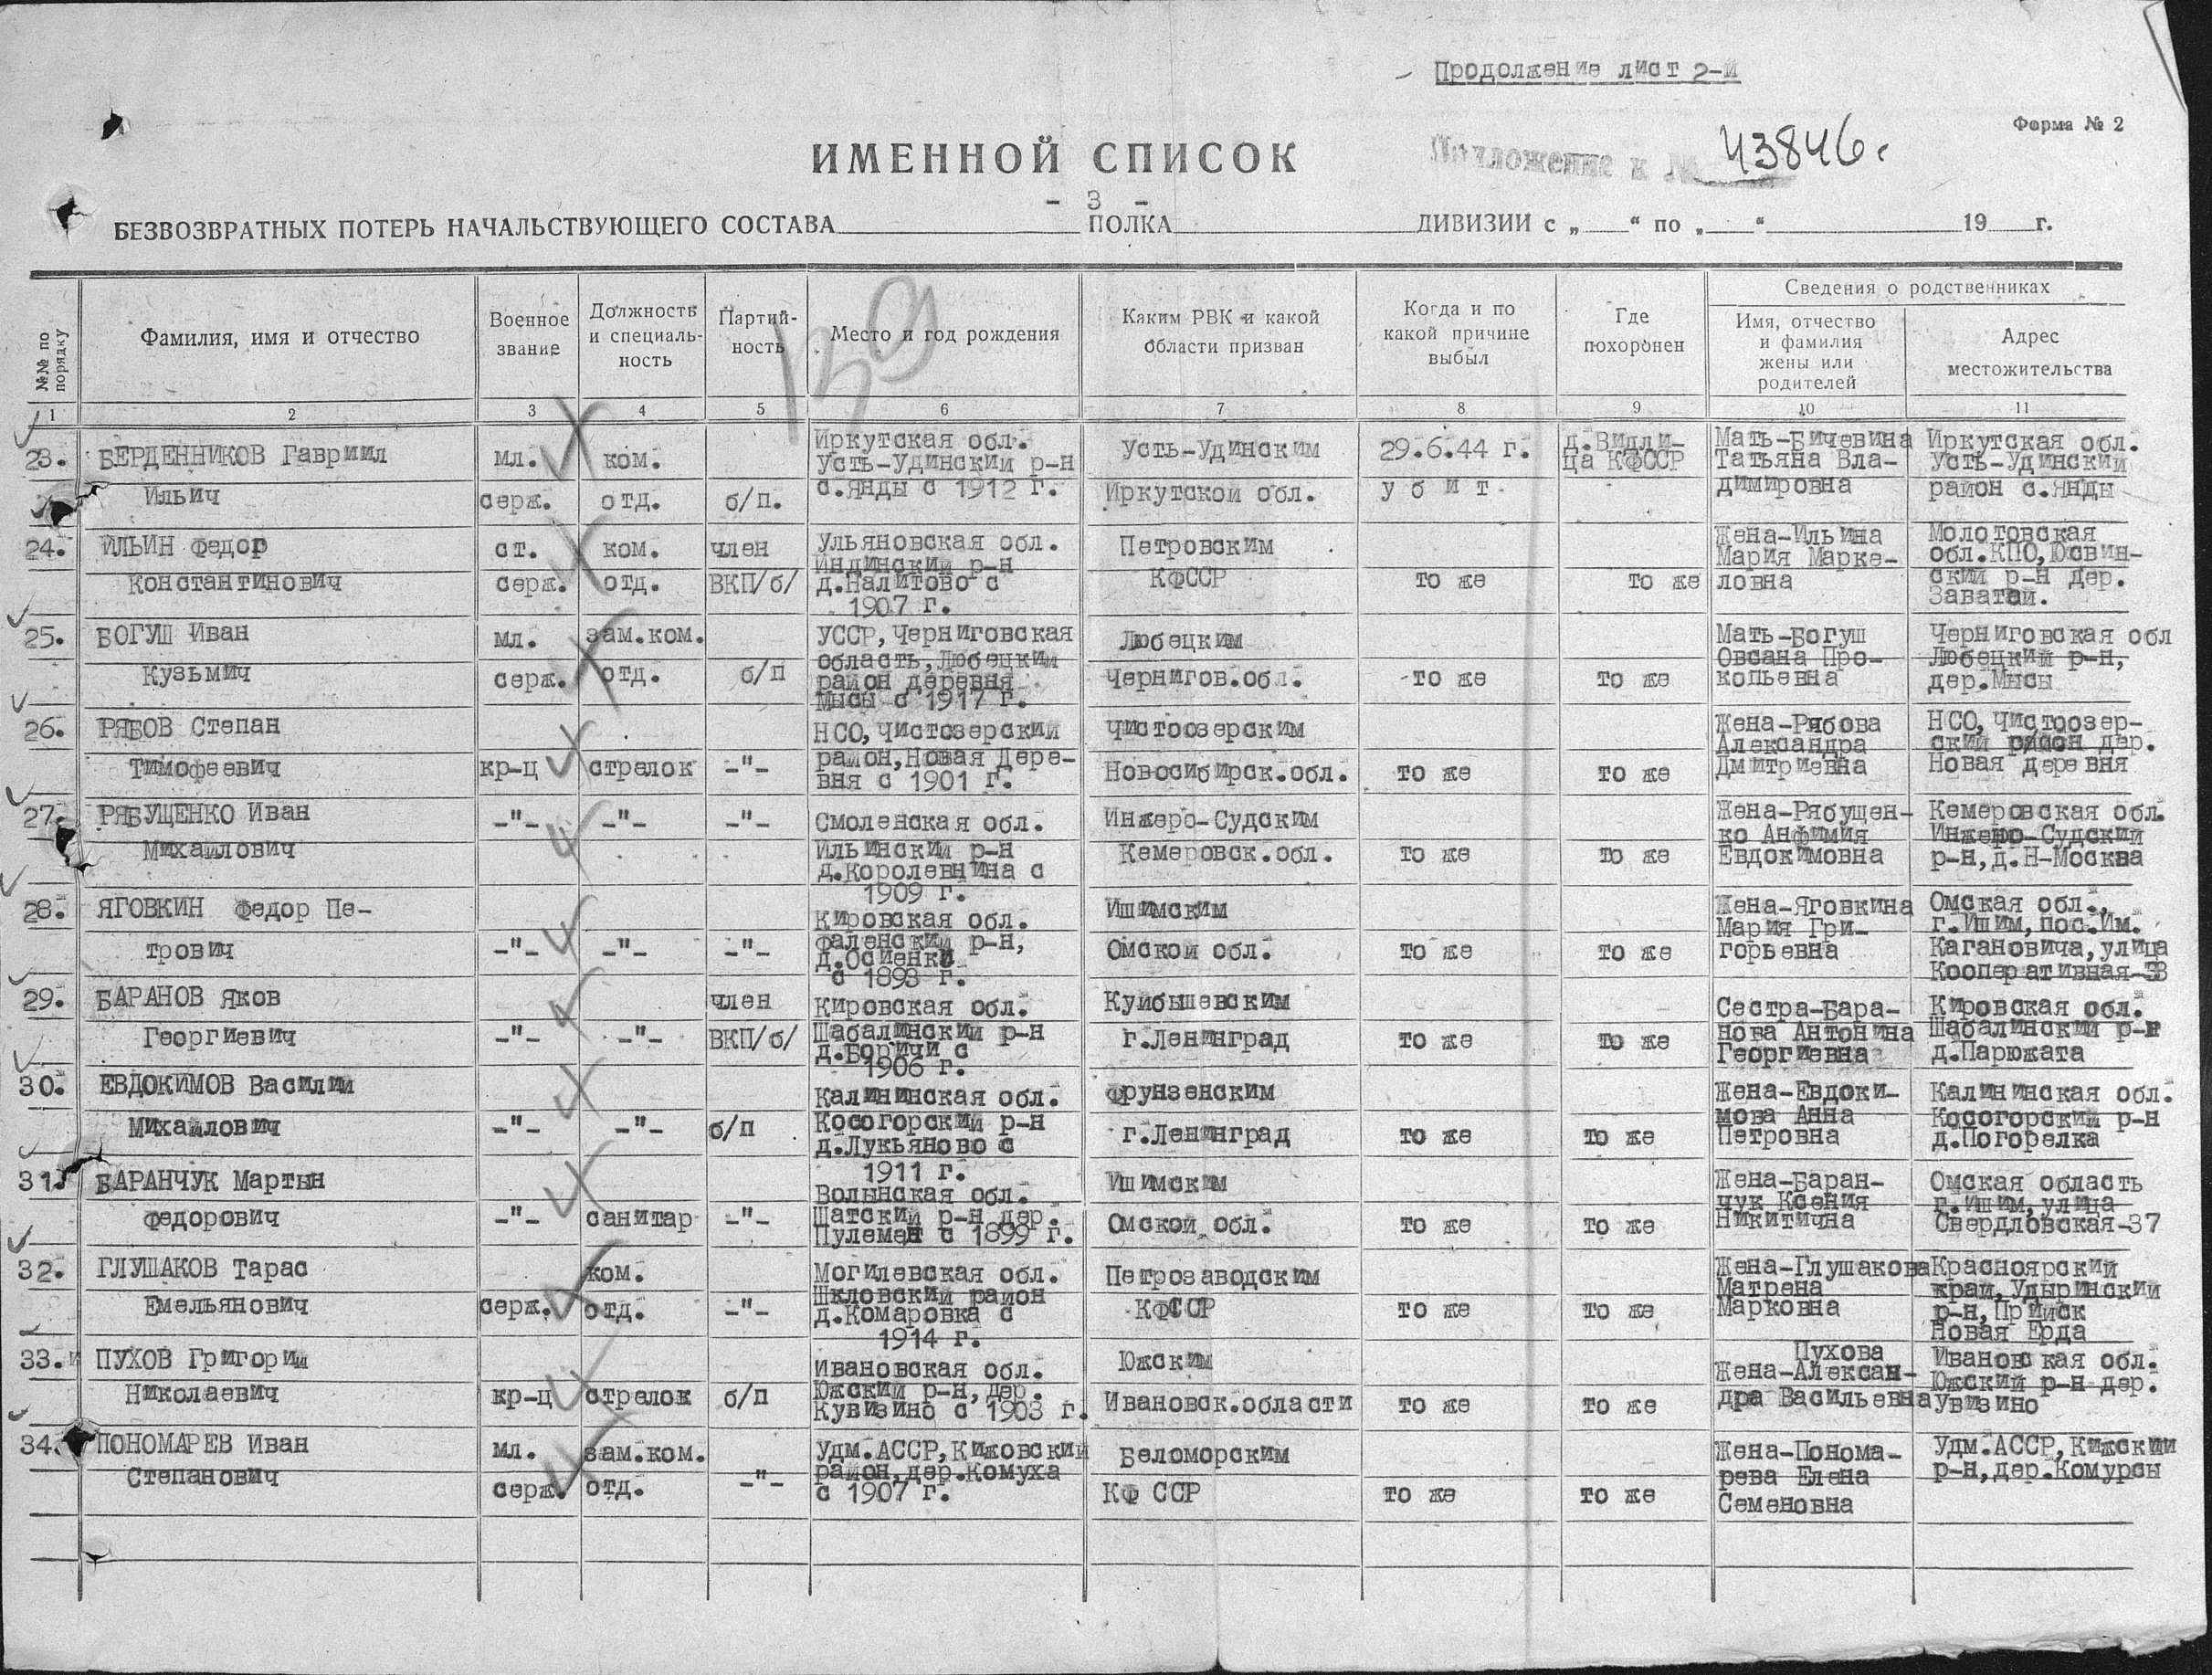 Продолжение лист 2-й
Форма № 2
ИМЕННОЙ СПИСОК
Приложение к № 43846г
- 3 -
БЕЗВОЗВРАТНЫХ ПОТЕРЬ НАЧАЛЬСТВУЮЩЕГО СОСТАВА ПОЛКА ДИВИЗИИ с „ “ по „ “ 19 г.
139
№№ по порядку
Фамилия, имя и отчество
Военное звание
Должность и специаль-ность
Партий-ность
Место и год рождения
Каким РВК и какой области призван
Когда и по какой причине выбыл
Где похоронен
Сведения о родственниках
Имя, отчество и фамилия жены или родителей
Адрес местожительства
1 2 3 4 5 6 7 8 9 10 11
23. БЕРДЕННИКОВ Гавриил Ильич
мл. серж.
ком. отд.
б/п.
Иркутская обл. Усть-Удинский р-н с.Янды с 1912 г.
Усть-Удинским Иркутской обл.
29.6.44 г. у б и т
д.Видли-ца КФССР
Мать-Бичевина Татьяна Вла-димировна
Иркутская обл. Усть-Удинский район с.Янды
24. ИЛЬИН Федор Константинович
ст. серж.
ком. отд.
член ВКП/б/
Ульяновская обл. Индинский р-н д.Налитово с 1907 г.
Петровским КФССР
то же
то же
Жена-Ильина Мария Марке-ловна
Молотовская обл.КПО,Юсвин-ский р-н дер. Заватай.
25. БОГУШ Иван Кузьмич
мл. серж.
зам.ком. отд.
б/п
УССР,Черниговская область,Любецкий район деревня Мысы с 1917 г.
Любецким Чернигов.обл.
то же
то же
Мать-Богуш Овсана Про-копьевна
Черниговская обл Любецкий р-н, дер.Мысы
26. РЯБОВ Степан Тимофеевич
кр-ц
стрелок
-"-
НСО,Чистозерский район,Новая Дере-вня с 1901 г.
Чистоозерским Новосибирск.обл.
то же
то же
Жена-Рябова Александра Дмитриевна
НСО,Чистоозер-ский район дер. Новая деревня
27. РЯБУЩЕНКО Иван Михайлович
-"-
-"-
-"-
Смоленская обл. Ильинский р-н д.Королевнина с 1909 г.
Инжеро-Судским Кемеровск.обл.
то же
то же
Жена-Рябущен-ко Анфимия Евдокимовна
Кемеровская обл. Инжеро-Судский р-н,д.Н-Москва
28. ЯГОВКИН Федор Пе-трович
-"-
-"-
-"-
Кировская обл. Фаленский р-н, д.Осиенки с 1893 г.
Ишимским Омской обл.
то же
то же
Жена-Яговкина Мария Гри-горьевна
Омская обл., г.Ишим,пос.Им. Кагановича,улица Кооперативная-
29. БАРАНОВ Яков Георгиевич
-"-
-"-
член ВКП/б/
Кировская обл. Шабалинский р-н д.Боричи с 1906 г.
Куйбышевским г.Ленинград
то же
то же
Сестра-Бара-нова Антонина Георгиевна
Кировская обл. Шабалинский р-н д.Парюжата
30. ЕВДОКИМОВ Василий Михайлович
-"-
-"-
б/п
Калининская обл. Косогорский р-н д.Лукьяново с 1911 г.
Фрунзенским г.Ленинград
то же
то же
Жена-Евдоки-мова Анна Петровна
Калининская обл. Косогорский р-н д.Погорелка
31. БАРАНЧУК Мартын Федорович
-"-
санитар
-"-
Волынская обл. Шатский р-н дер. Пулемен с 1899 г.
Ишимским Омской обл.
то же
то же
Жена-Баран-чук Ксения Никитична
Омская область г.Ишим,улица Свердловская-37
32. ГЛУШАКОВ Тарас Емельянович
серж.
ком. отд.
-"-
Могилевская обл. Шкловский район д.Комаровка с 1914 г.
Петрозаводским КФССР
то же
то же
Жена-Глушакова Матрена Марковна
Красноярский край,Удыринский р-н,Прииск Новая Ерда
33. ПУХОВ Григорий Николаевич
кр-ц
стрелок
б/п
Ивановская обл. Южский р-н,дер. Кувизино с 1903 г.
Южским Ивановск.области
то же
то же
Пухова Жена-Алексан-дра Васильевна
Ивановская обл. Южский р-н дер. увизино
34. ПОНОМАРЕВ Иван Степанович
мл. серж.
зам.ком. отд.
-"-
Удм.АССР,Кижовский район,дер.Комуха с 1907 г.
Беломорским КФ ССР
то же
то же
Жена-Понома-рева Елена Семеновна
Удм.АССР,Кижский р-н,дер.Комурсы